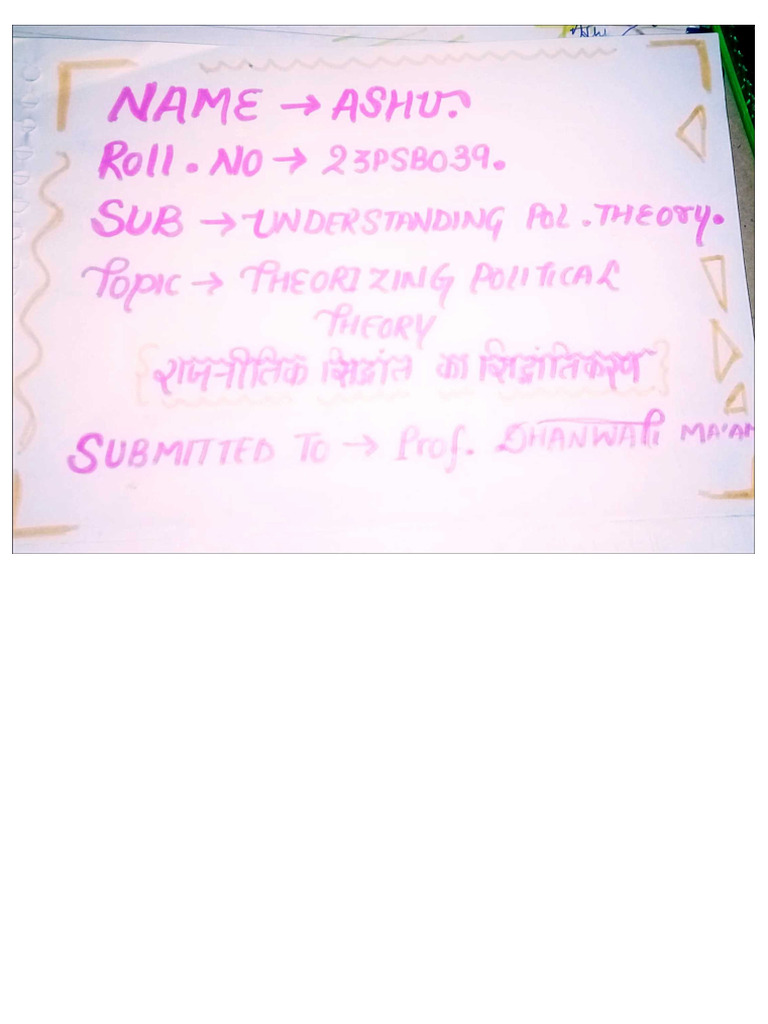 NAME → ASHU.
Roll. NO → 23PSB039.
SUB → UNDERSTANDING POL. THEORY.
Topic → THEORIZING POLITICAL
THEORY
राजनीतिक सिद्धांत का सिद्धांतिकरण
SUBMITTED TO → Prof. DHANWATI MA'AM